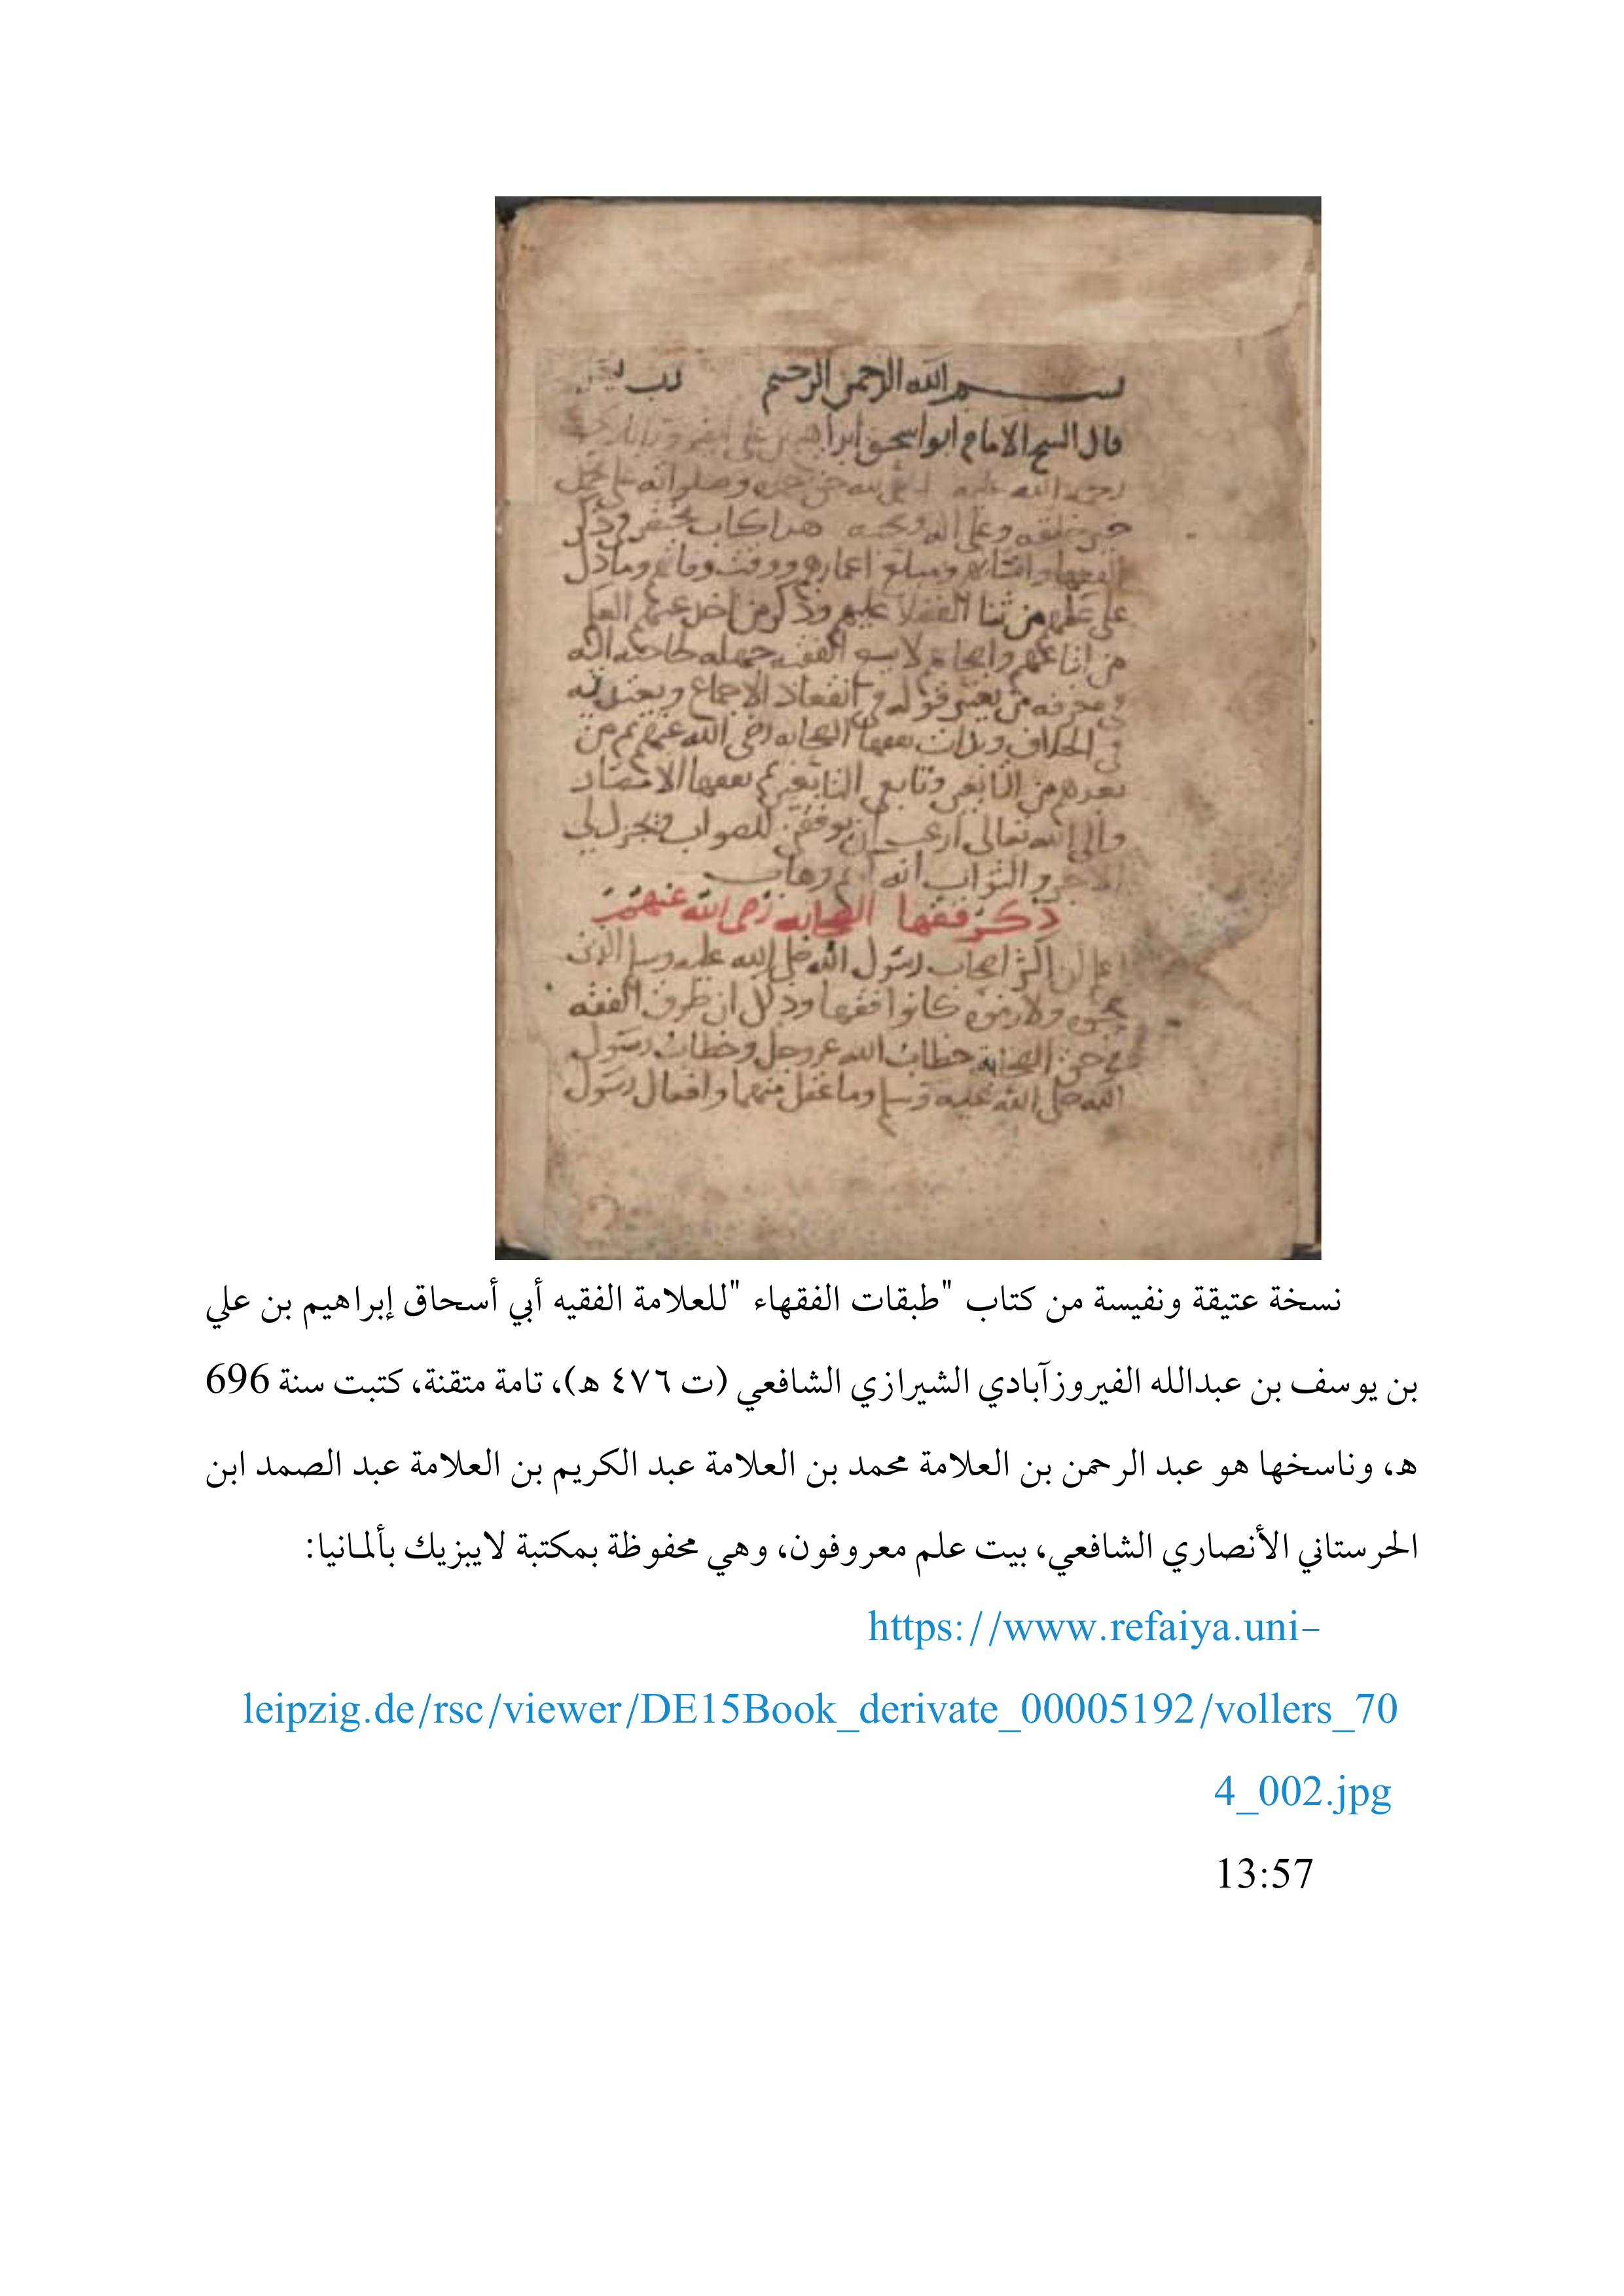 بسم الله الرحمن الرحيم رب
قال الشيخ الامام ابو اسحق ابراهيم بن علي
رحمة الله عليه الحمد لله حق حمده وصلواته على محمد
خير خلقه وعلى اله وصحبه هذا كتاب مختصر في ذكر
الفقها وانسابهم ومبلغ اعمارهم ووقت وفاتهم وما دل
على علمهم من ثنا الفضلا عليهم وذكر من اخذ عنهم العلم
من اتباعهم واصحابهم لا يسع الفقيه جهله لحاجته اليه
في معرفة من يعتبر قوله في انعقاد الاجماع ويعتد به
في الخلاف وبدات بفقها الصحابه رضي الله عنهم ثم من
بعدهم من التابعين وتابعي التابعين ثم بفقها الامصار
والى الله تعالى ارغب ان يوفقني للصواب ويجزل لي
الاجر والثواب انه كريم وهاب
ذكر فقها الصحابه رضي الله عنهم
اعلم ان اكثر اصحاب رسول الله صلى الله عليه وسلم الذين
صحبوه ولازموه كانوا فقها وذلك ان طرق الفقه
في حق الصحابة خطاب الله عز وجل وخطاب رسول
الله صلى الله عليه وسلم وما عقل منهما وافعال رسول
نسخة عتيقة ونفيسة من كتاب "طبقات الفقهاء "للعلامة الفقيه أبي أسحاق إبراهيم بن علي
بن يوسف بن عبدالله الفيروزآبادي الشيرازي الشافعي (ت ٤٧٦ هـ)، تامة متقنة، كتبت سنة 696
هـ، وناسخها هو عبد الرحمن بن العلامة محمد بن العلامة عبد الكريم بن العلامة عبد الصمد ابن
الحرستاني الأنصاري الشافعي، بيت علم معروفون، وهي محفوظة بمكتبة لايبزيك بألمـانيا:
https://www.refaiya.uni-
leipzig.de/rsc/viewer/DE15Book_derivate_00005192/vollers_70
4_002.jpg
13:57